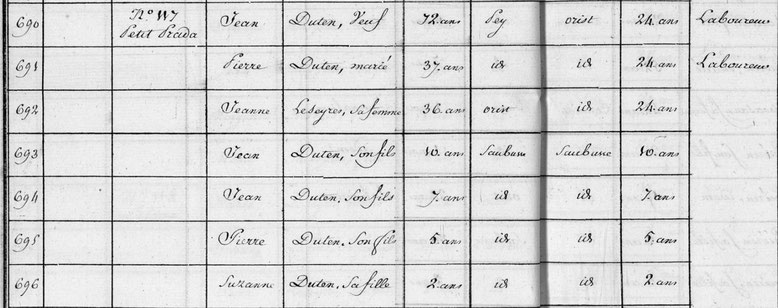 690 No 117 Petit Prada Jean Duten, Veuf 72. ans Pey orist 24. ans Laboureur
691 Pierre Duten, marié 37. ans id id 24. ans Laboureur
692 Jeanne Leseyres, sa femme 36. ans orist id 24. ans
693 Jean Duten, Son fils 10. ans Saubusse Saubusse 10. ans
694 Jean Duten, Son fils 7. ans id id 7. ans
695 Pierre Duten, Son fils 5. ans id id 5. ans
696 Suzanne Duten, Sa fille 2. ans id id 2. ans